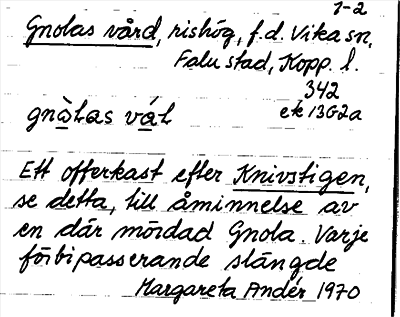 1-2
Gnolas vård, rishög, f.d. Vika sn,
Falu stad, Kopp. l.
342
ek 13G2a
gnὰlas vál
Ett offerkast efter Knivstigen,
se detta, till åminnelse av
en där mördad Gnola. Varje
förbipasserande slängde
Margareta Andér 1970